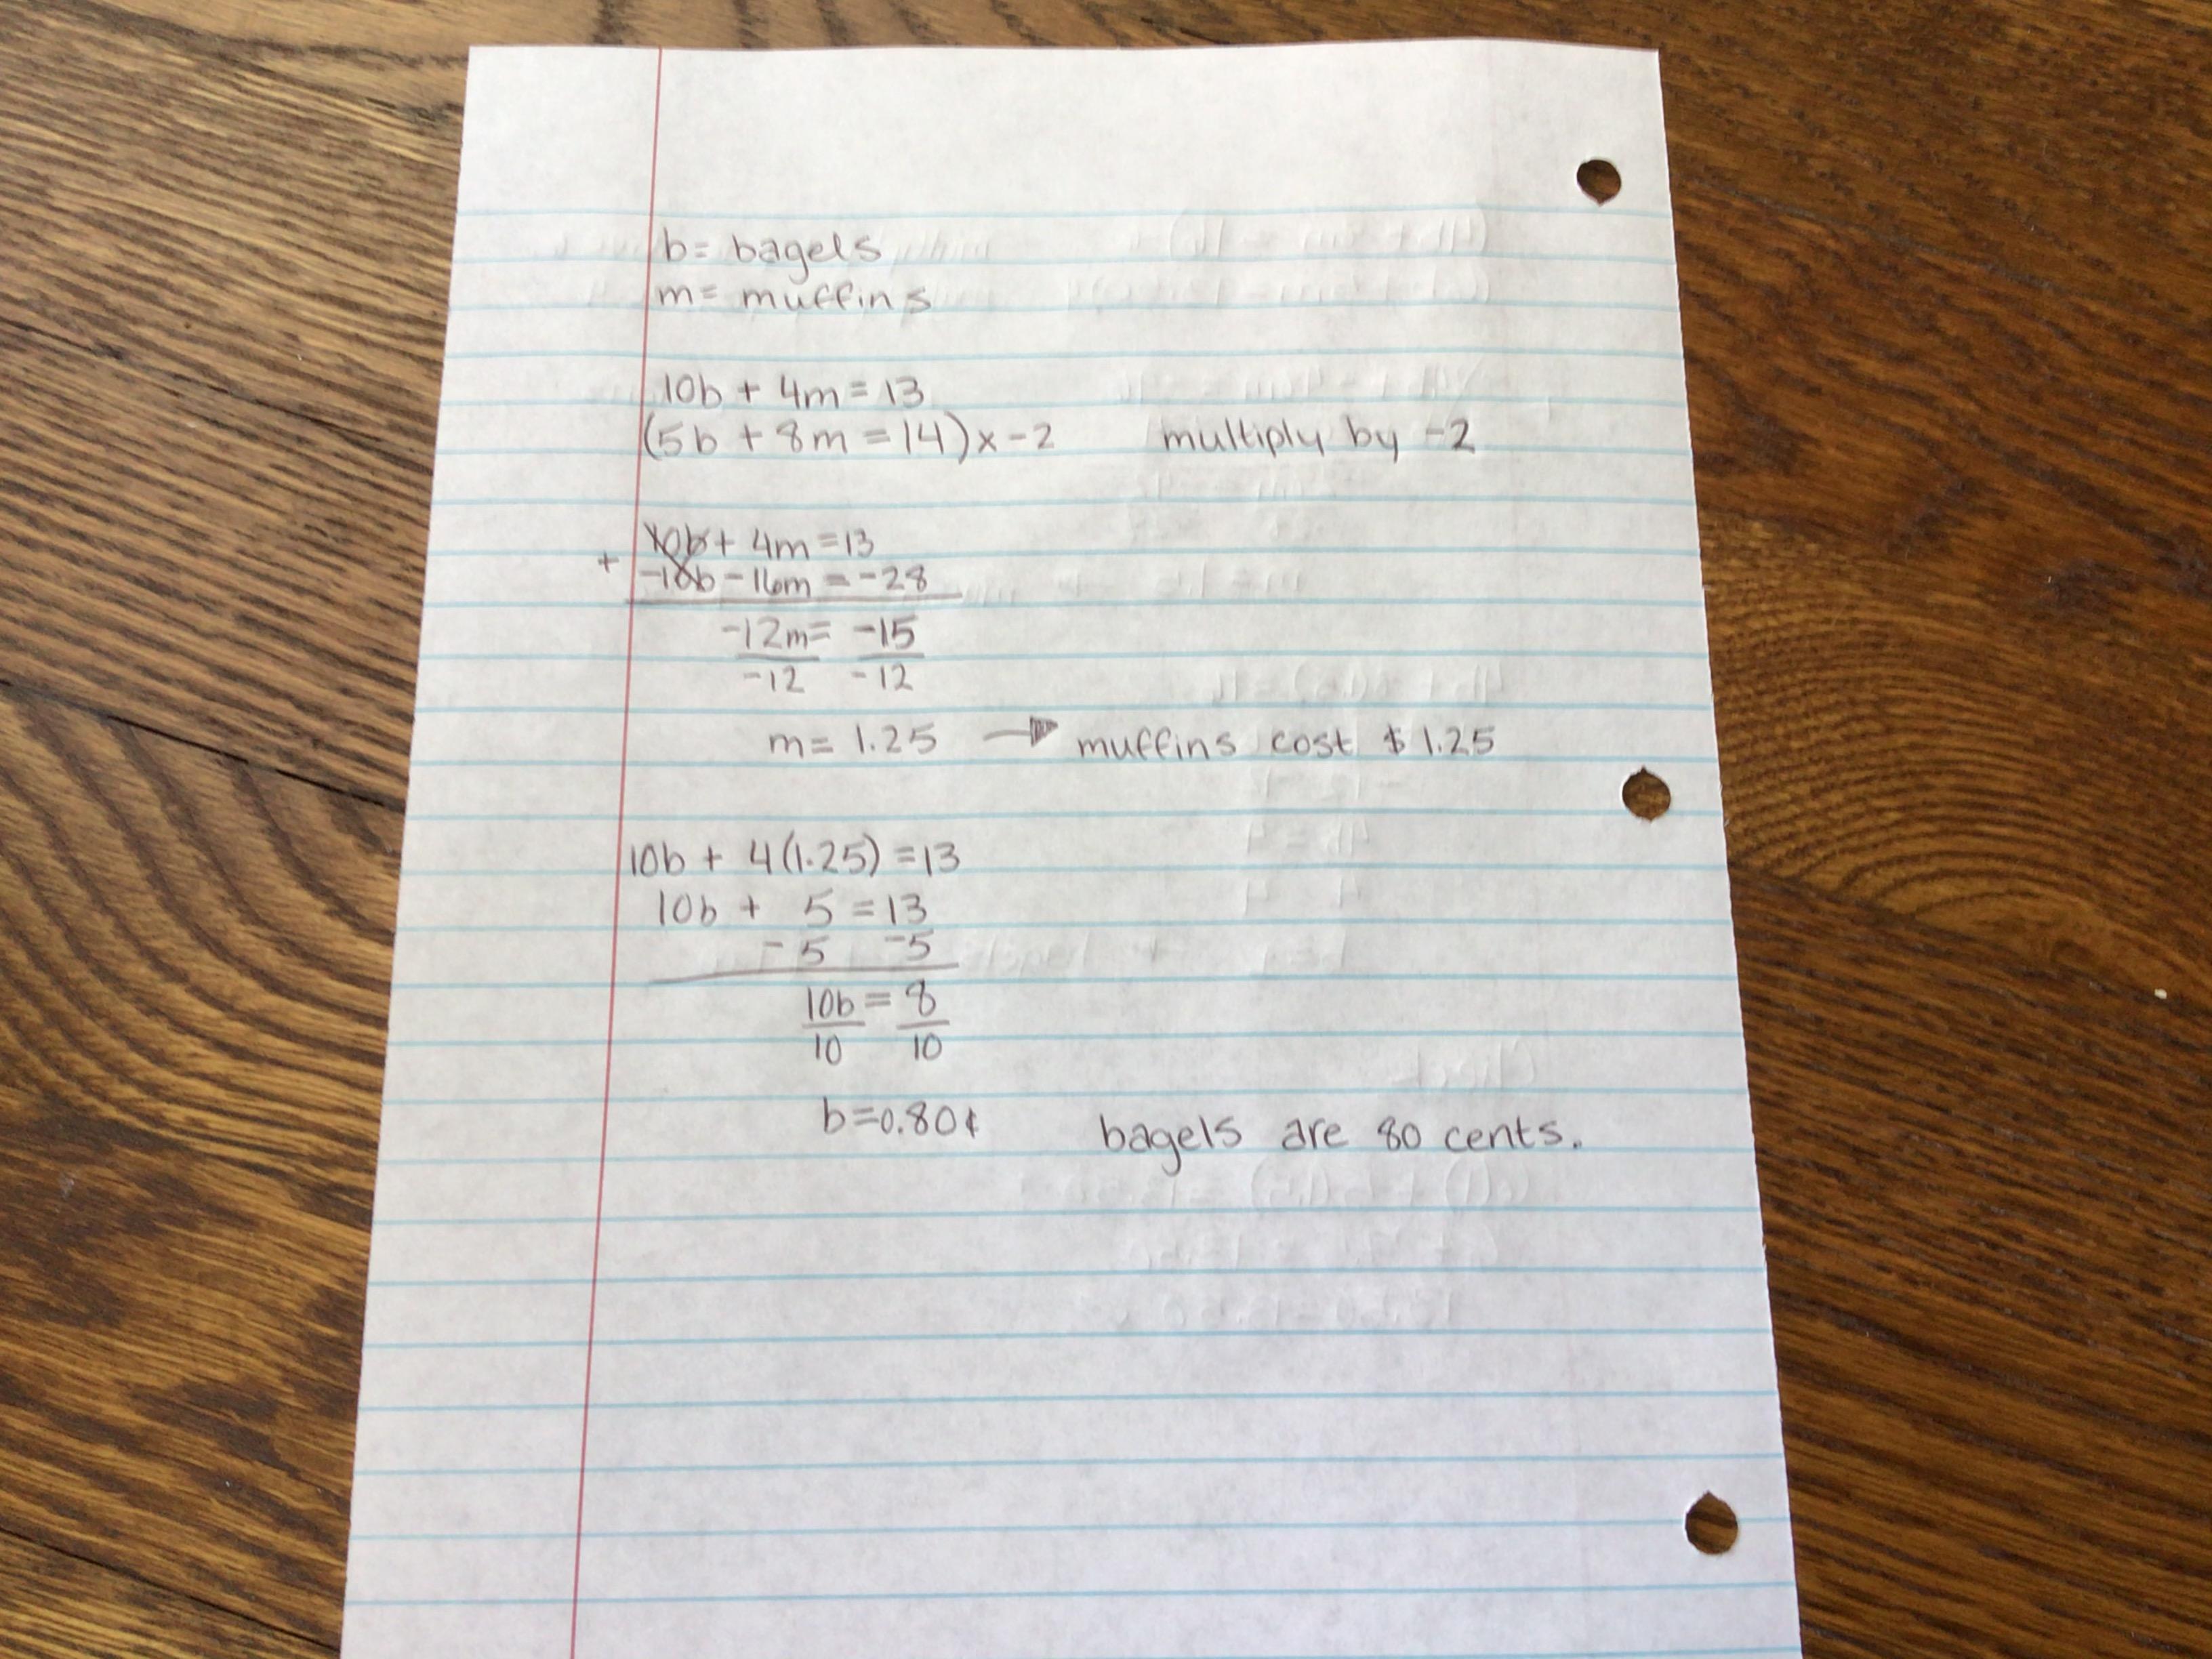 b= bagels
m= muffins
10b + 4m = 13
(5b + 8m = 14) x -2 multiply by -2
10b + 4m = 13
+ -10b - 16m = -28
-12m = -15
-12 -12
m = 1.25 → muffins cost $1.25
10b + 4(1.25) = 13
10b + 5 = 13
-5 -5
10b = 8
10 10
b=0.80¢ bagels are 80 cents.